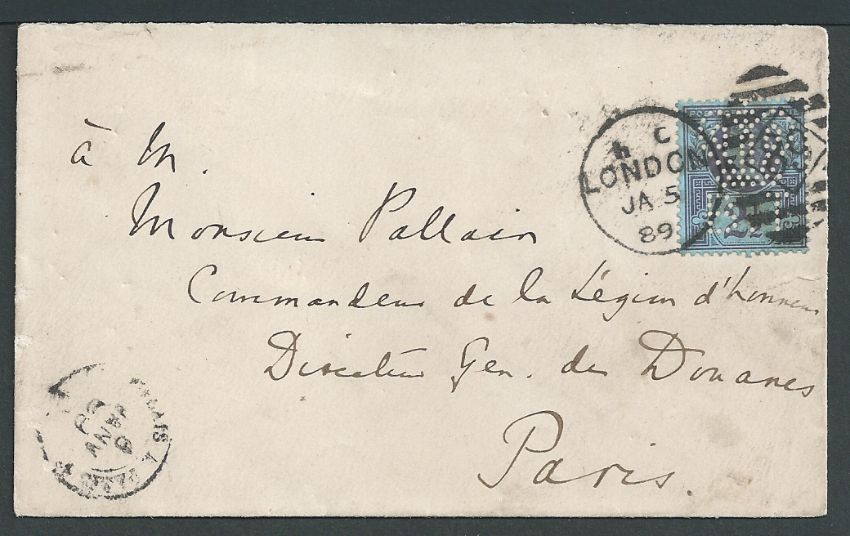 à M.
Monsieur Pallain
Commandeur de la Légion d'honneur
Directeur Gen. des Douanes
Paris.
h C
LONDON
JA 5
89
2½
CALAIS A PARIS